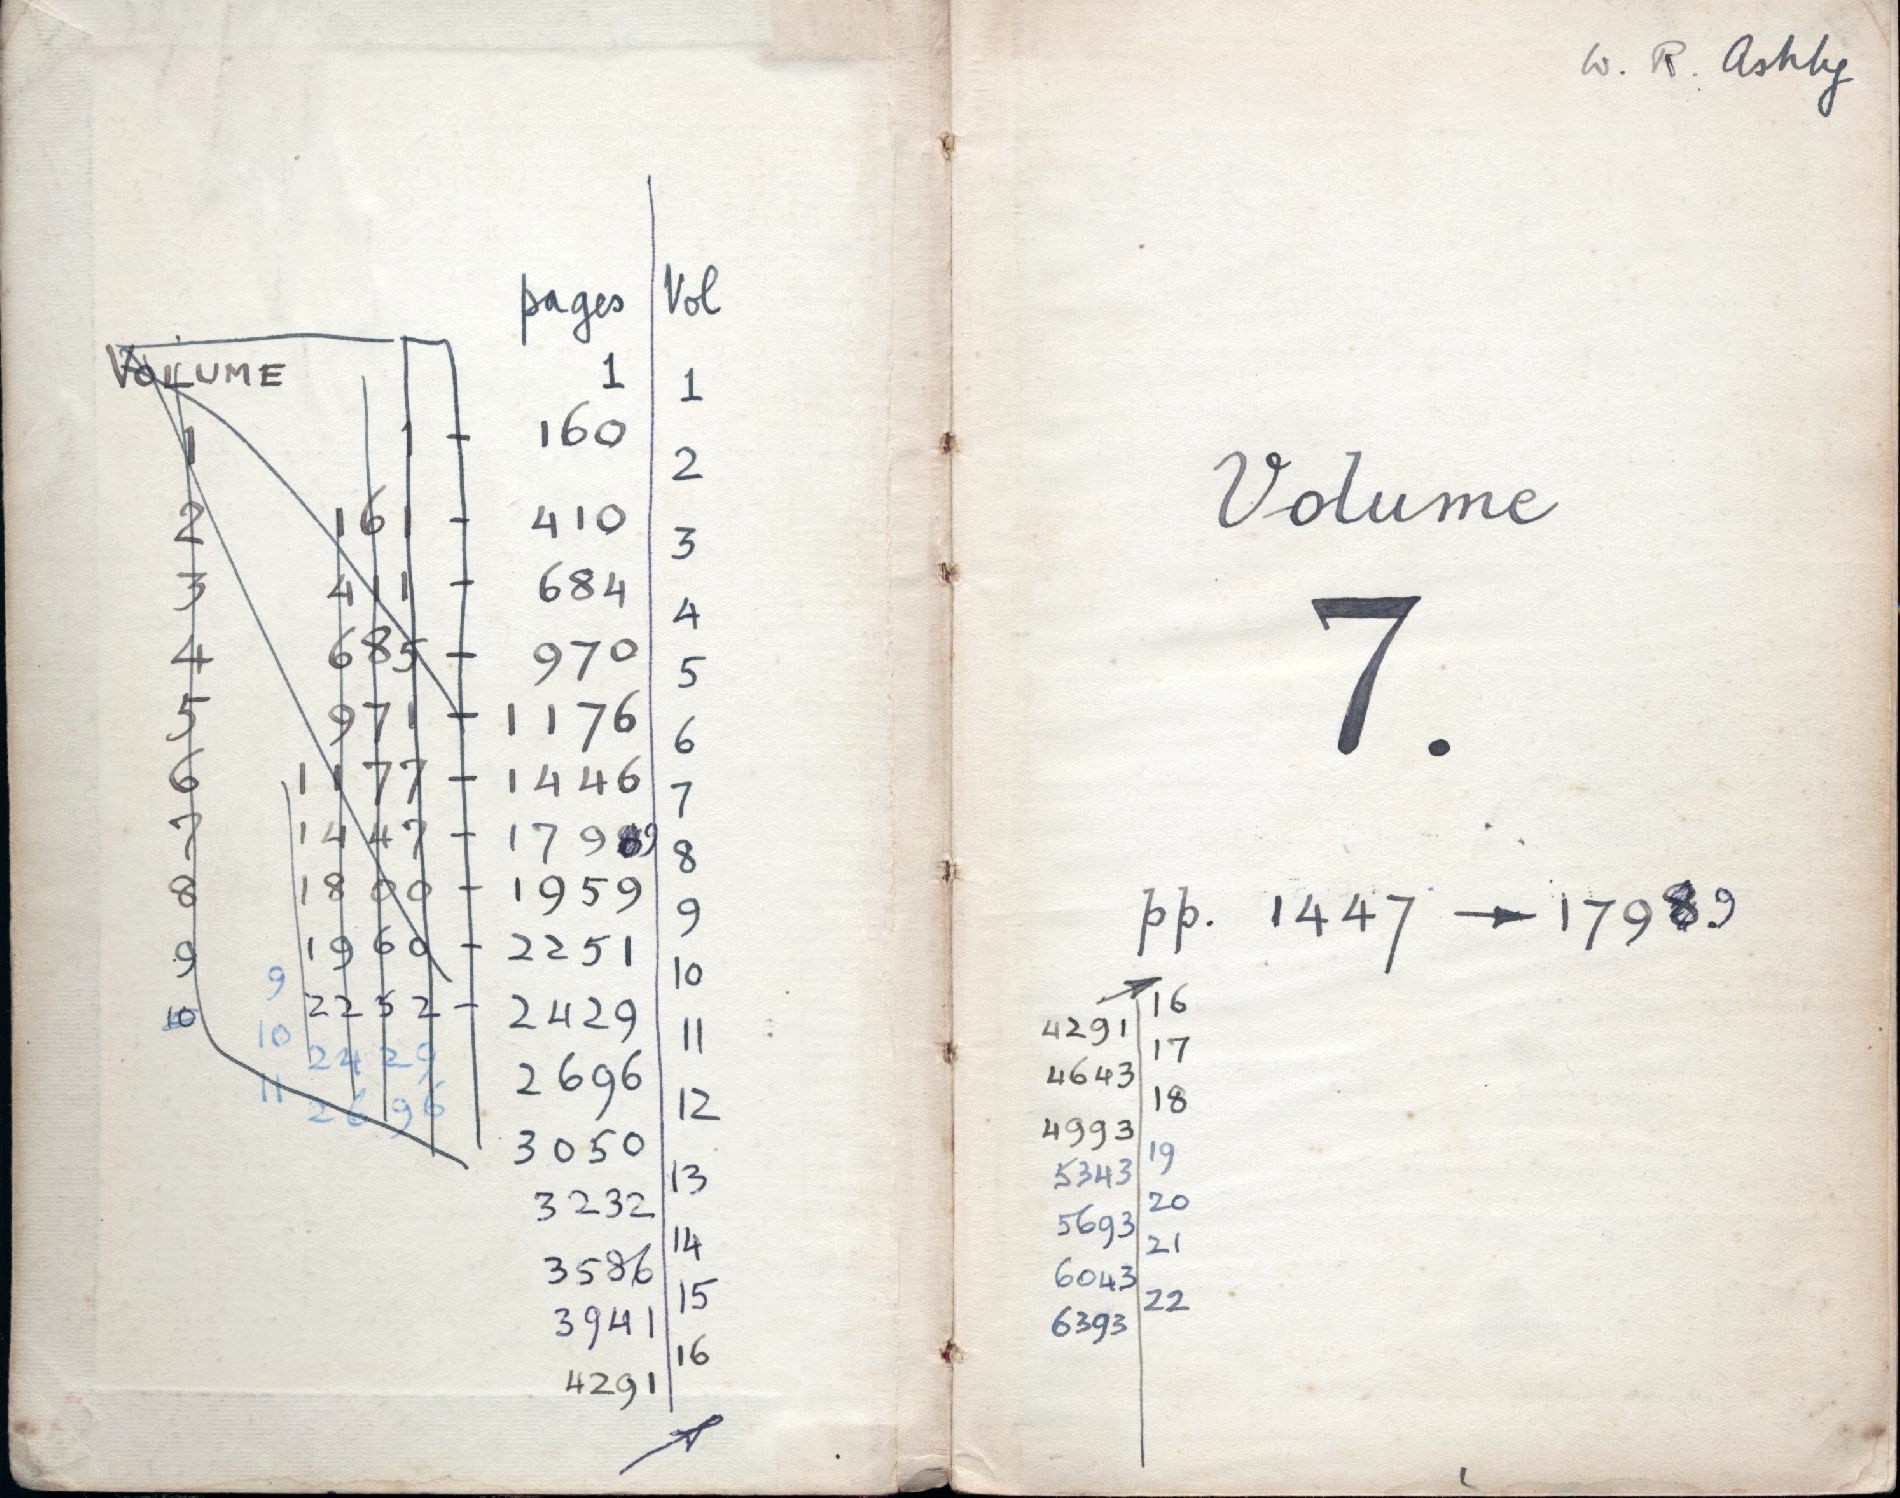 pages | Vol
VOLUME
1 1 - 1 | 1
160 | 2
2 161 - 410 | 3
3 411 - 684 | 4
4 685 - 970 | 5
5 971 - 1176 | 6
6 1177 - 1446 | 7
7 1447 - 1799 | 8
8 1800 - 1959 | 9
9 1960 - 2251 | 10
10 2252 - 2429 | 11
9
10 2429
11 2696
2696 | 12
3050 | 13
3232 | 14
3586 | 15
3941 | 16
4291
W. R. Ashby
Volume
7.
pp. 1447 → 1799
16
4291 | 17
4643 | 18
4993 | 19
5343 | 20
5693 | 21
6043 | 22
6393